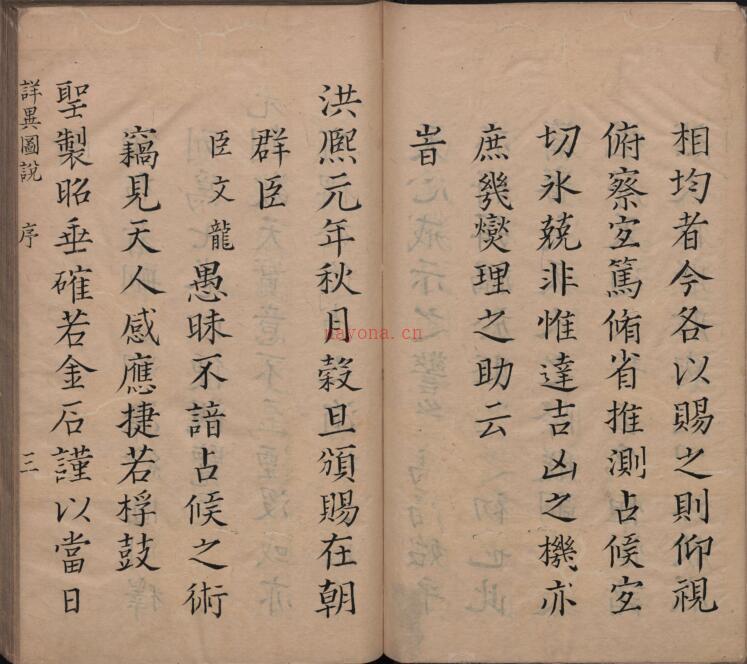 相均者今各以賜之則仰視
俯察宜篤脩省推測占候宜
切氷兢非惟達吉凶之機亦
庶幾燮理之助云
旹
洪熙元年秋月穀旦頒賜在朝
群臣
臣文龍愚昧不諳占候之術
竊見天人感應捷若桴鼓
聖製昭垂確若金石謹以當日
詳異圖說 序 三
nayona.cn